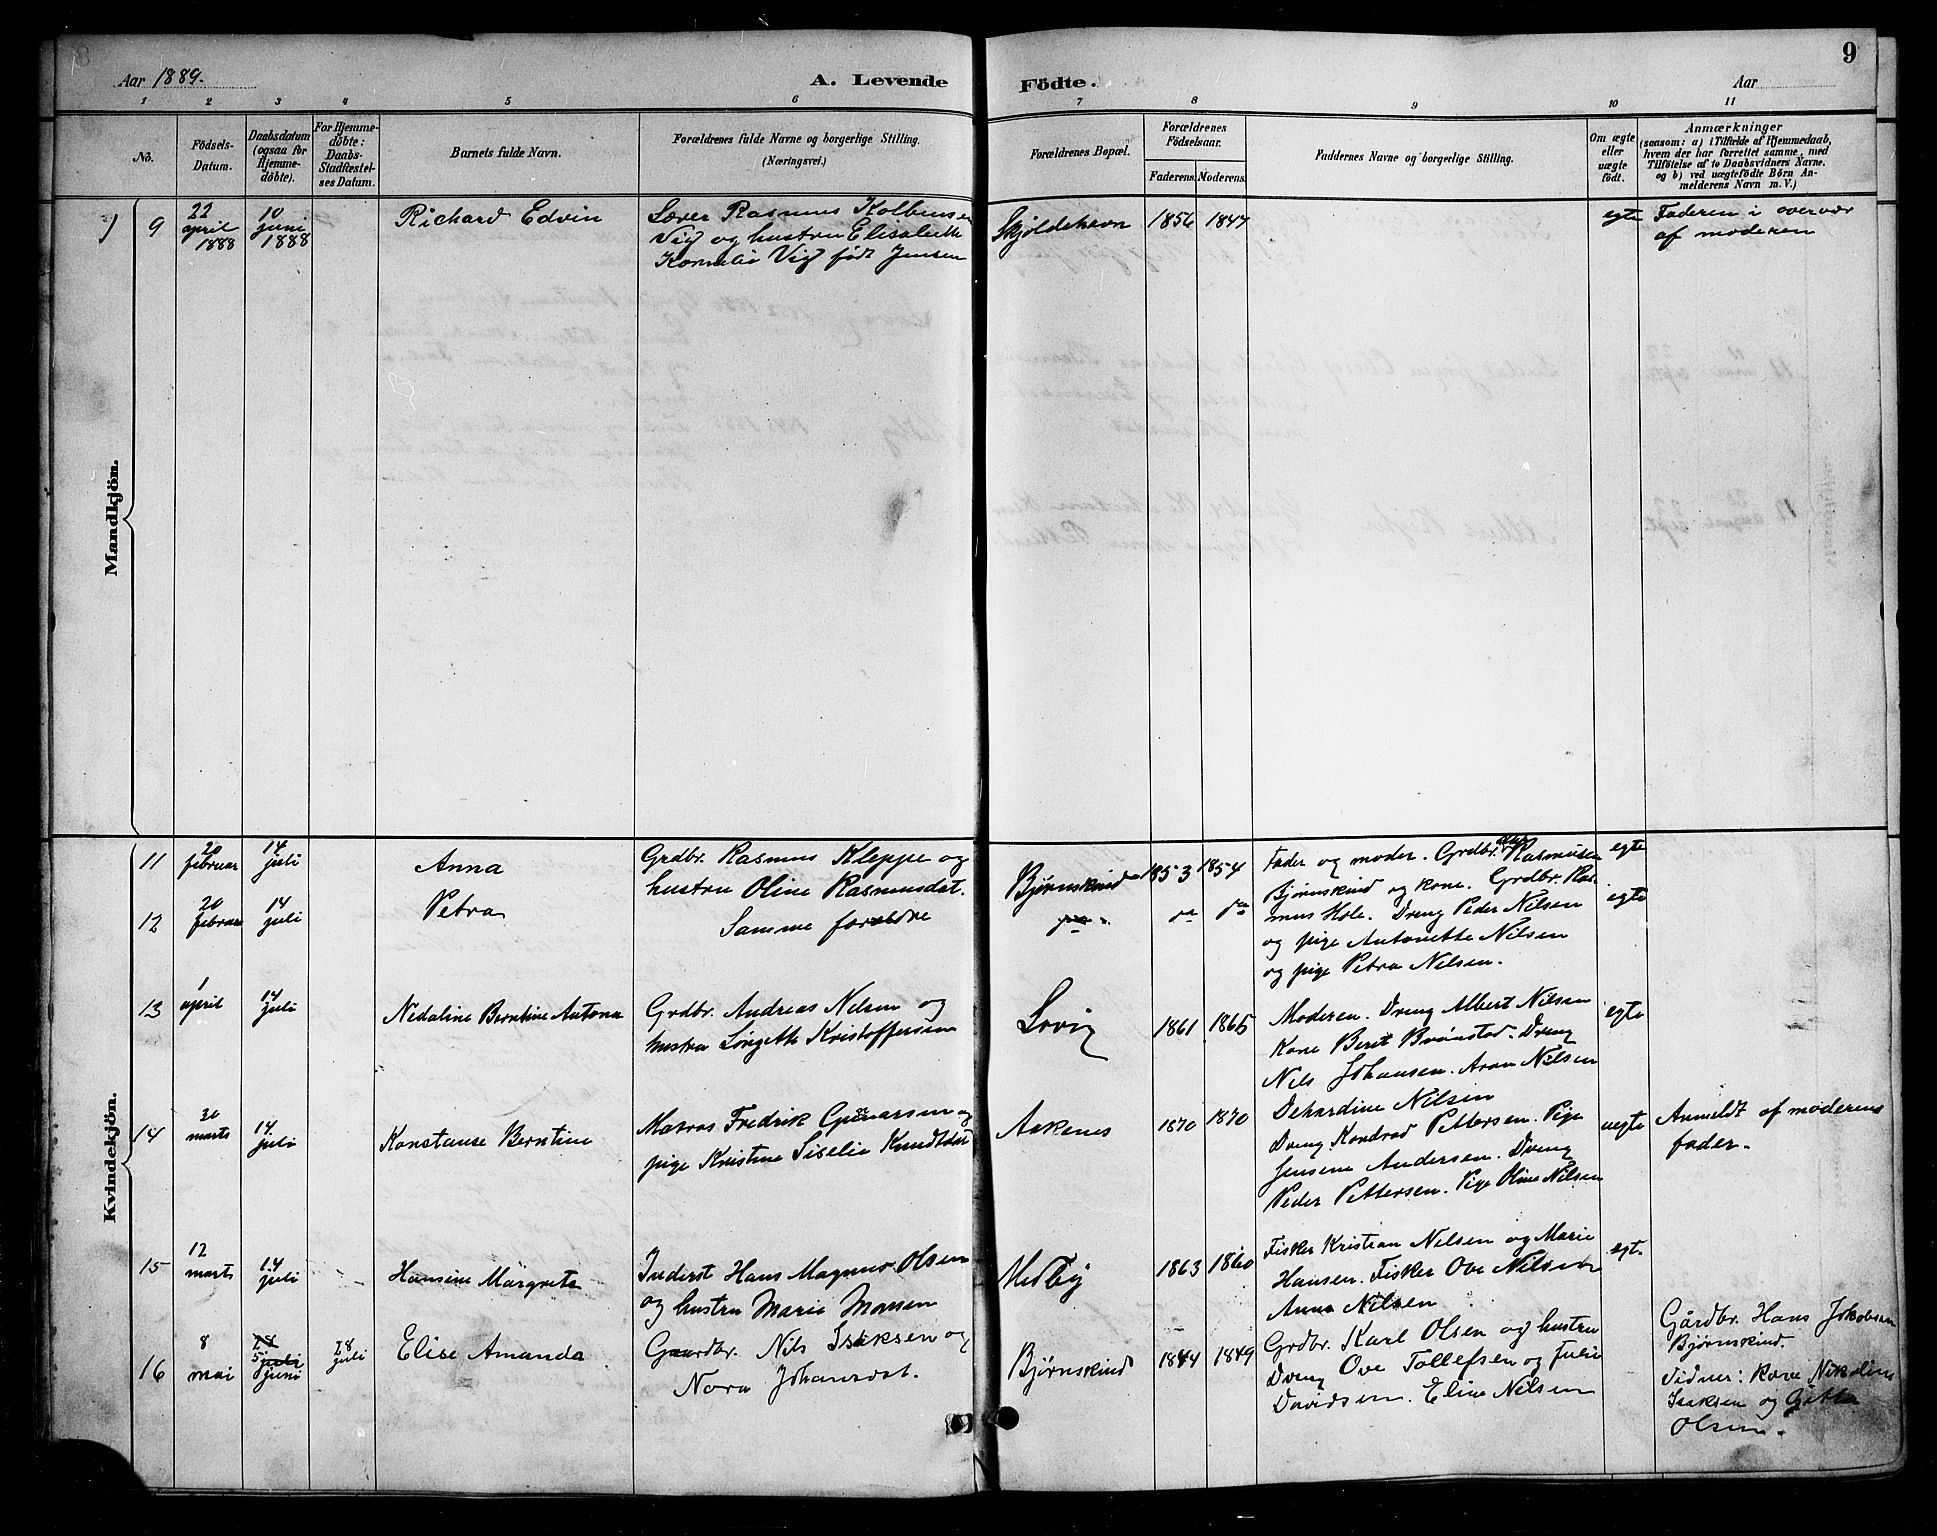 Aar 1889.
A. Levende
Födte.
Aar
9
1 2 3 4 5 6 7 8 9 10 11
No.
Födsels-
Datum.
Daabsdatum
(ogsaa for
Hjemme-
döbte).
For Hjemme-
döbte:
Daabs-
Stadfæstel-
ses Datum.
Barnets fulde Navn.
Forældrenes fulde Navne og borgerlige Stilling.
(Næringsvei.)
Forældrenes Bopæl.
Forældrenes
Födselsaar.
Faderens. Moderens.
Faddernes Navne og borgerlige Stilling.
Om ægte
eller
uægte
födt.
Anmærkninger
(saasom: a) i Tilfælde af Hjemmedaab,
hvem der har forrettet samme, med
Tilföielse af to Daabsvidners Navne.
og b) ved uægtefödte Börn An-
melderens Navn m. V.)
Mandkjön.
9
22
april
1888
10
juni
1888
Richard Edvin
Lærer Rasmus Kolbensen
Vig og hustru Elisabeth
Kornelie Vig født Jensen
Skjoldehavn
1856 1847
egte
Faderen i overvær
af moderen
Kvindekjön.
11
20
februar
14
juli
Anna
Grdbr. Rasmus Kleppe og
hustru Oline Rasmusdat.
Bjørnskind
1853 1854
Fader og moder. Grdbr. Rasmusen
Bjørnskind og kone. Grdbr. Ras-
mus Hole. Dreng Peder Nilsen
og pige Antonette Nilsen
og pige Petra Nilsen.
egte
12
20
februar
14
juli
Petra
Samme forældre
egte
13
1
april
14
juli
Nedaline Berntine Antona
Grdbr. Andreas Nilsen og
hustru Lorgette Kristoffersen
Lovig
1861 1865
Moderen. Dreng Albert Nilsen
Kone Berit Brønstad. Dreng
Nils Johansen. Aron Nilsen
Dehardine Nilsen
egte
14
30
marts
14
juli
Konstanse Berntine
Matros Fredrik Gunarsen og
pige Kristine Siselie Knudtdat
Aakenes
1870 1870
Dreng Kondrad Pettersen. Pige
Jensine Andersen. Dreng
Peder Pettersen. Pige Oline Nilsen
uegte
Anmeldt af moderens
fader.
15
12
marts
14
juli
Hansine Margrete
Inderst Hans Magnus Olsen
og hustru Marie Monsen
Medby
1863 1860
Fisker Kristian Nilsen og Marie
Hansen. Fisker Ove Nilsen
Anna Nilsen
egte
16
8
mai
juni
28
juli
Elise Amanda
Gaardbr. Nils Isaksen og
Nora Johansdat.
Bjørnskind
1844 1849
Grdbr. Karl Olsen og hustru
Dreng Ove Tollefsen og Julie
Davidsen. Eline Nilsen
Gårdbr. Hans Jakobsen
Bjørnskind.
Vidner: kone Nikoline
Isaksen og
Olsen.